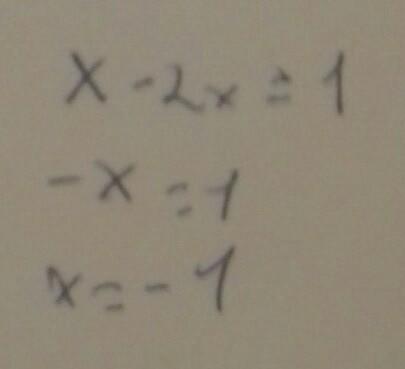 x - 2x = 1
-x = 1
x = -1